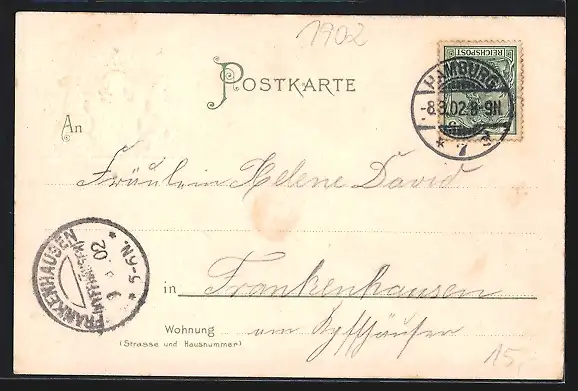 1902
POSTKARTE
REICHSPOST
HAMBURG
-8.3.02.8-9N
* 7
An
Fräulein Helene David
FRANKENHAUSEN
02
* 5-6N. *
in Frankenhausen
Wohnung am Kyffhäuser
(Strasse und Hausnummer)
15,-